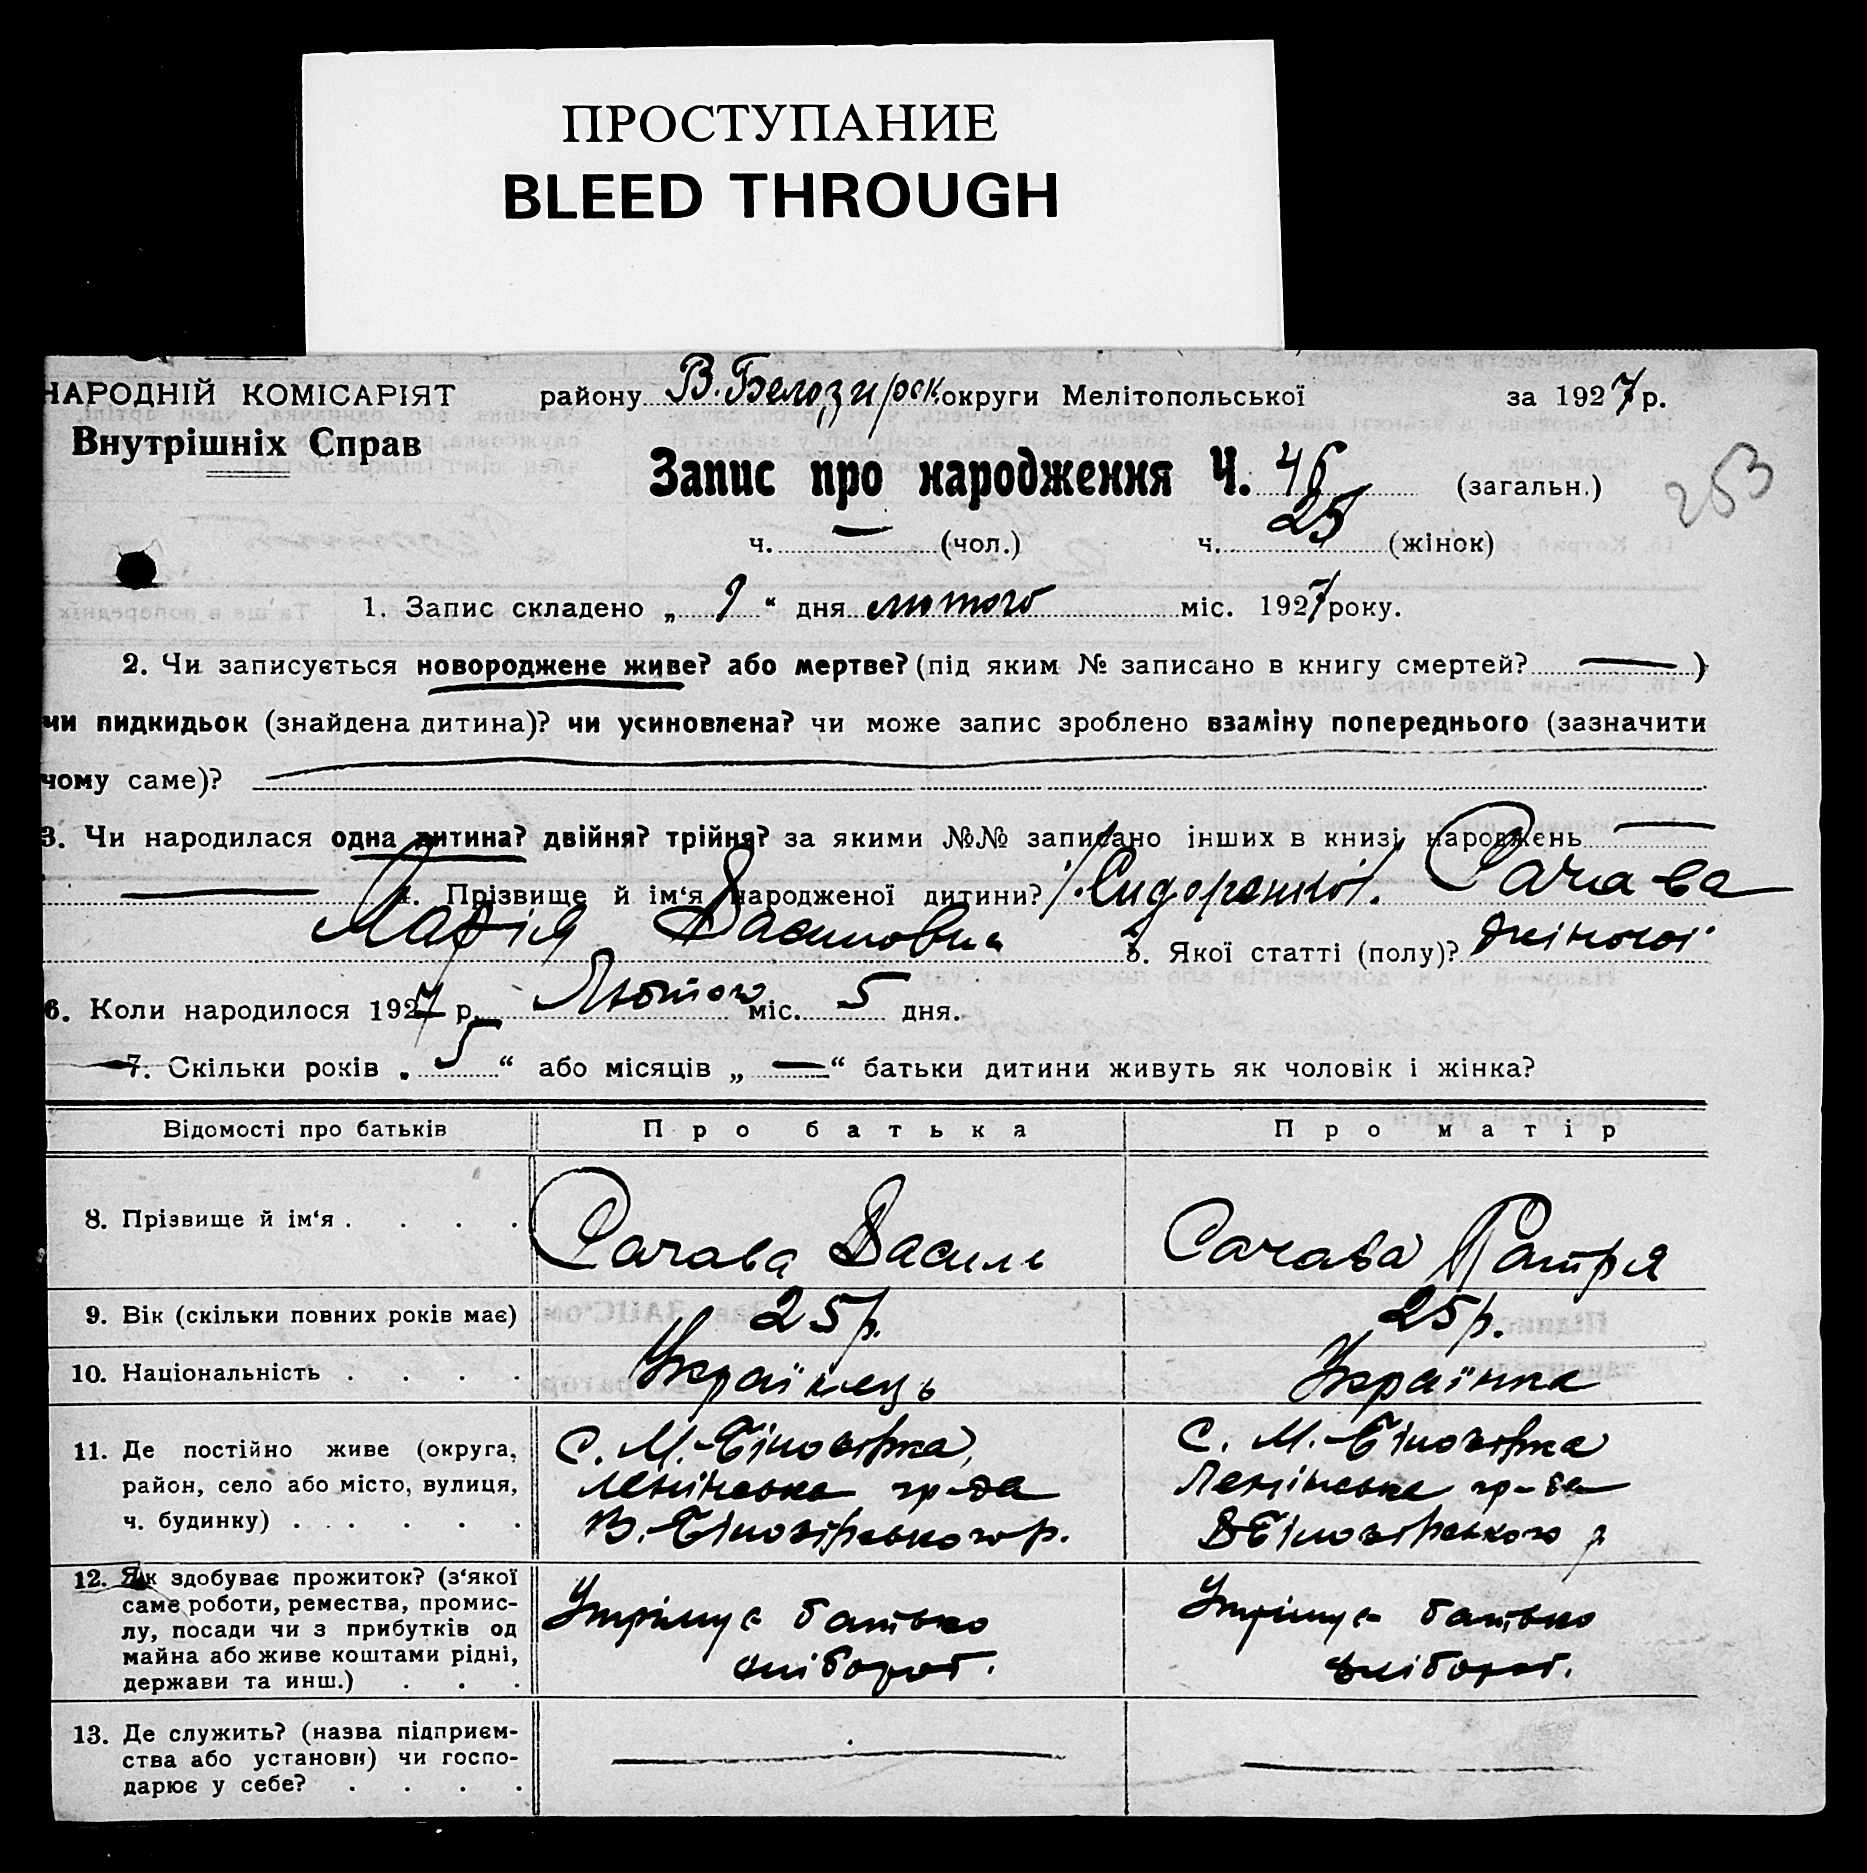 ПРОСТУПАНИЕ
BLEED THROUGH
НАРОДНІЙ КОМІСАРІЯТ району В. Белозирск. округи Мелітопольської за 1927 р.
Внутрішніх Справ
Запис про народження Ч. 46 (загальн.)
253
ч. — (чол.) ч. 25 (жінок)
1. Запис складено „ 9 “ дня лютого міс. 1927 року.
2. Чи записується новороджене живе? або мертве? (під яким № записано в книгу смертей? — )
чи пидкидьок (знайдена дитина)? чи усиновлена? чи може запис зроблено взаміну попереднього (зазначити
чому саме)?
3. Чи народилася одна дитина? двійня? трійня? за якими №№ записано інших в книзі народжень —
— 4. Прізвище й ім‘я народженої дитини? Сачава
Марія Василовна 5. Якої статті (полу)? жіночої
6. Коли народилося 1927 р. Лютого міс. 5 дня.
7. Скільки років „ 5 “ або місяців „ — “ батьки дитини живуть як чоловік і жінка?
Відомості про батьків Про батька Про матір
8. Прізвище й ім‘я . . . . Сачава Василь Сачава Патря
9. Вік (скільки повних років має) 25 р. 25 р.
10. Національність . . . . Українець Українка
11. Де постійно живе (округа, С. М.-Білозірка, С. М.-Білозірка
район, село або місто, вулиця, Ленінська гр-да Ленінська гр-да
ч. будинку) . . . . . . В.-Білозірського р. В Білозірського р
12. Як здобуває прожиток? (з‘якої
саме роботи, ремества, промис- Утрімує батько Утрімує батько
лу, посади чи з прибутків од
майна або живе коштами рідні, хлібороб. хлібороб.
держави та инш.) . . .
13. Де служить? (назва підприєм-
ства або установи) чи госпо- — —
дарює у себе? . . . .